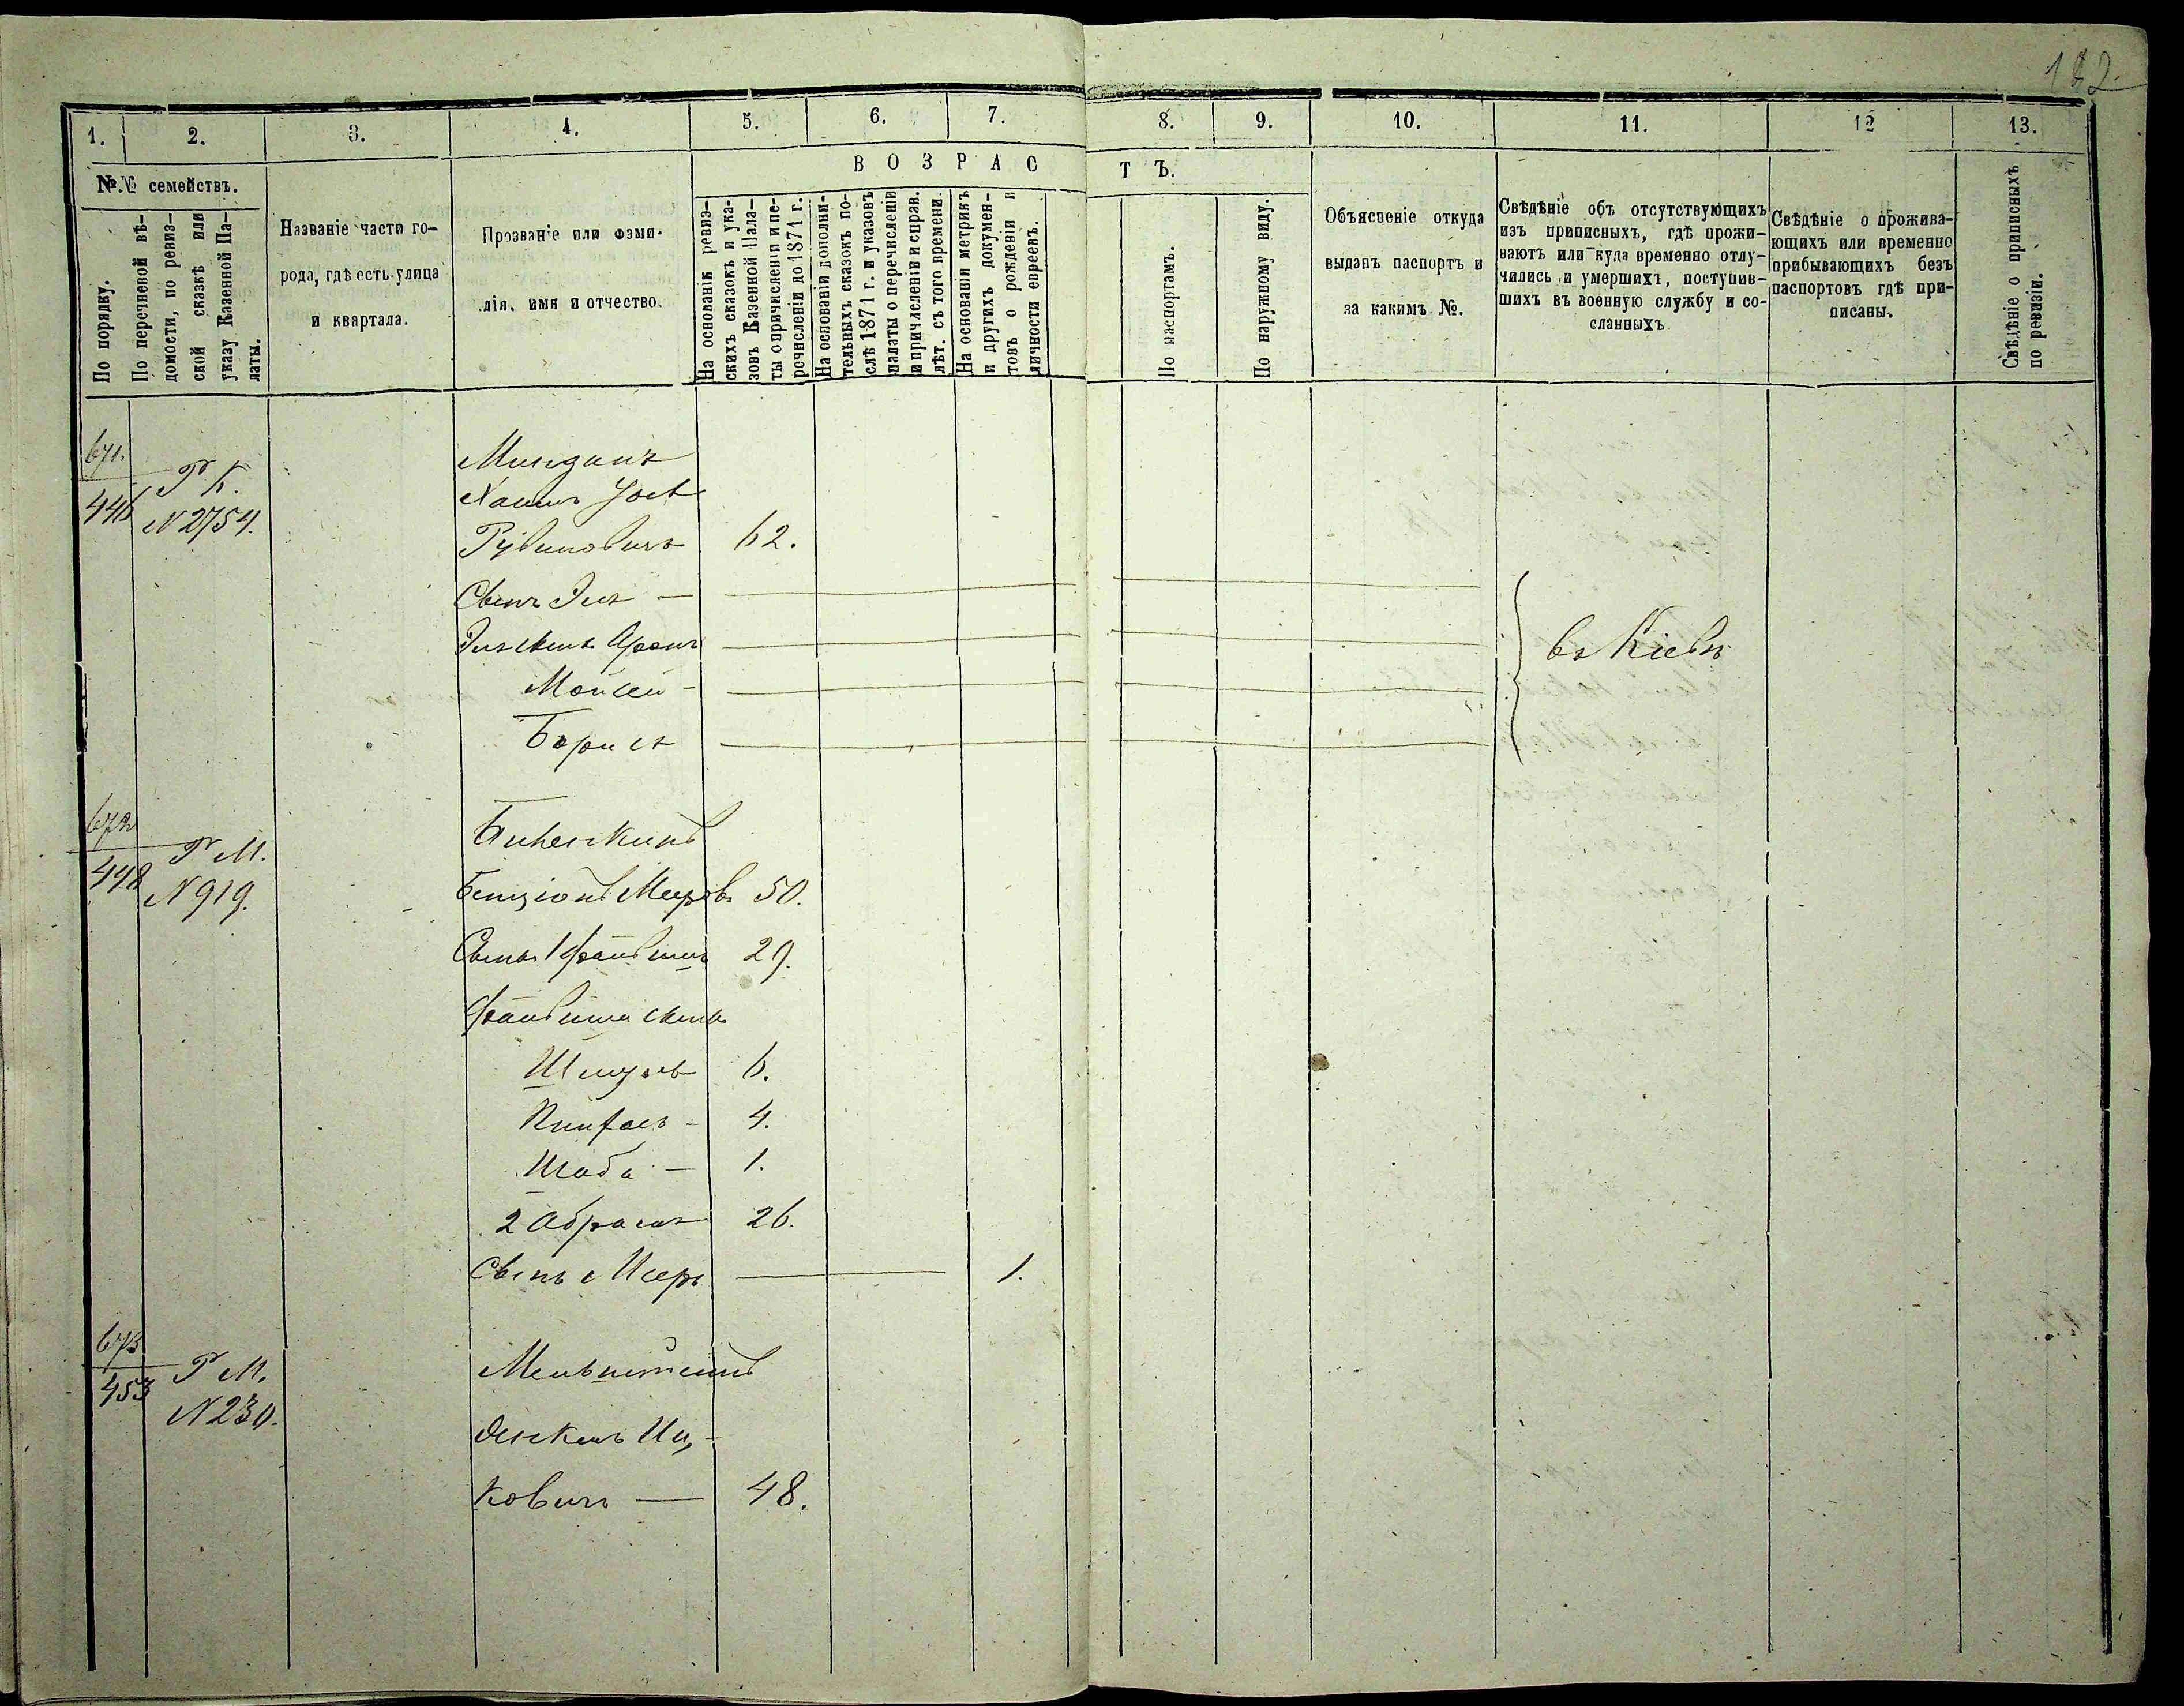 182
1.
2.
3.
4.
5.
6.
7.
8.
9.
10.
11.
12
13.
№№ семействъ.
По порядку.
По перечневой вѣ-
домости, по ревиз-
ской сказкѣ или
указу Казенной Па-
латы.
Названіе части го-
рода, гдѣ есть улица
и квартала.
Прозваніе или фами-
лія, имя и отчество.
ВОЗРАСТЪ.
На основаніи ревиз-
скихъ сказокъ и ука-
зовъ Казенной Пала-
ты о причисленіи и пе-
речисленіи до 1871 г.
На основаніи дополни-
тельныхъ сказокъ по-
слѣ 1871 г. и указовъ
палаты о перечисленіи
и причисленіи и справ.
лѣт. съ того времени.
На основаніи метрикъ
и другихъ докумен-
товъ о рожденіи и
личности евреевъ.
По паспортамъ.
По наружному виду.
Объясненіе откуда
выданъ паспортъ и
за какимъ №.
Свѣдѣніе объ отсутствующихъ
изъ приписныхъ, гдѣ прожи-
ваютъ или куда временно отлу-
чились и умершихъ, поступив-
шихъ въ военную службу и со-
сланныхъ
Свѣдѣніе о прожива-
ющихъ или временно
прибывающихъ безъ
паспортовъ гдѣ при-
писаны.
Свѣдѣніе о приписныхъ
по ревизіи.
671.
446
Р К.
N 2754.
Рувиновичъ 62.
Сынъ
Аронъ
Мойсей
Борисъ
въ Кіевѣ
672
448
Р М.
N 919.
Бенціонъ Мееров. 50.
Сынъ 1 Файвишъ 29.
Файвиша сыны
Шмуль 6.
Пинхас 4.
Шаба 1.
2 Абрамъ 26.
Сынъ Меер 1.
673
453
Р М.
N 230.
Иц-
ковичъ 48.